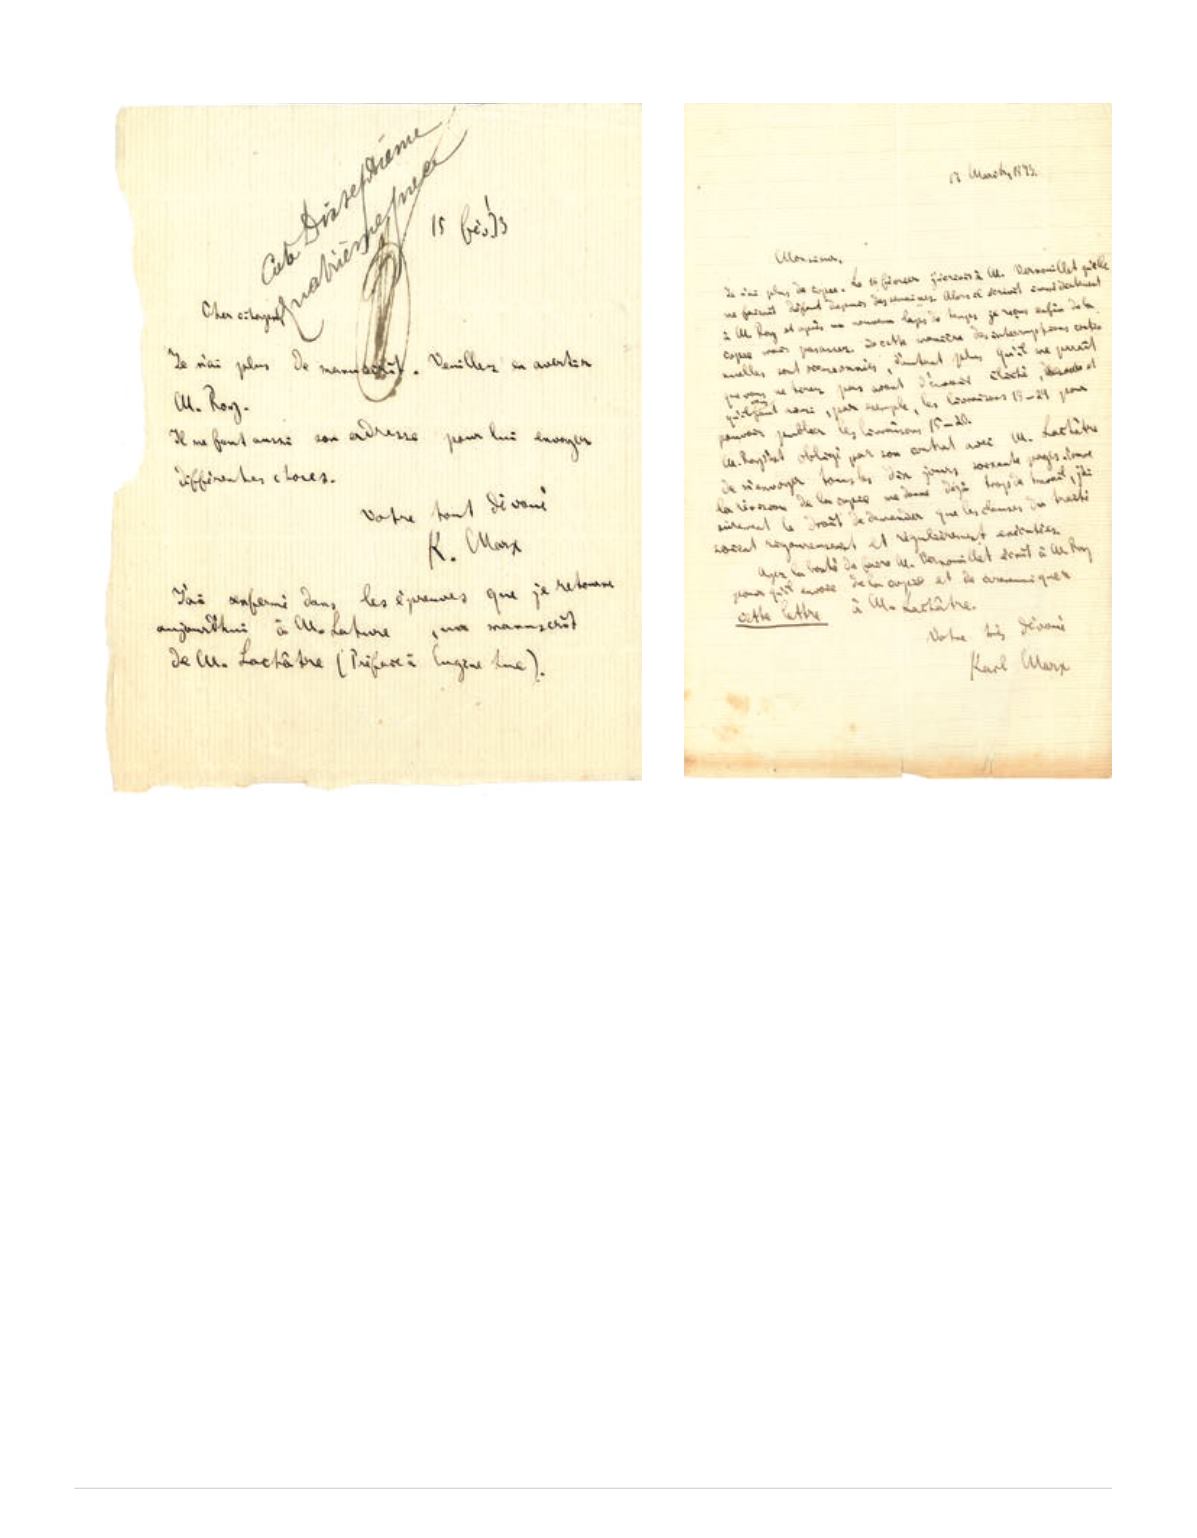 Cote Dixseptième
Quatrième pièce
15 fév. 73
Cher citoyen
Je n'ai plus de manuscrit. Veuillez en avertir
M. Roy.
Il me faut aussi son adresse pour lui envoyer
différentes choses.
Votre tout dévoué
K. Marx
J'ai enfermé dans les épreuves que je retourne
aujourd'hui à M. Lahure, un manuscrit
de M. Lachâtre (Préface à Eugène Sue).
Monsieur,
Je n'ai plus de copie. Le 15 février j'écrivis à M. Vernouillet qu'elle
me faisait défaut depuis des semaines. Alors il écrivit
à M. Roy et après un nouveau laps de temps je reçus enfin de la
copie mais pas assez. De cette manière des interruptions conti-
nuelles sont occasionnées, d'autant plus qu'il me paraît
que vous ne tirez pas avant d'avoir cliché, et
qu'il faut ainsi, par exemple, les livraisons 19-24 pour
pouvoir publier les livraisons 15-20.
M. Roy est obligé par son contrat avec M. Lachâtre
de m'envoyer tous les dix jours soixante pages. Comme
la révision de la copie me donne déjà trop de travail, j'ai
sûrement le droit de demander que les clauses du traité
soient rigoureusement et régulièrement exécutées.
Ayez la bonté de faire M. Vernouillet écrit à M. Roy
pour qu'il envoie de la copie et de communiquer
cette lettre à M. Lachâtre.
Votre très dévoué
Karl Marx